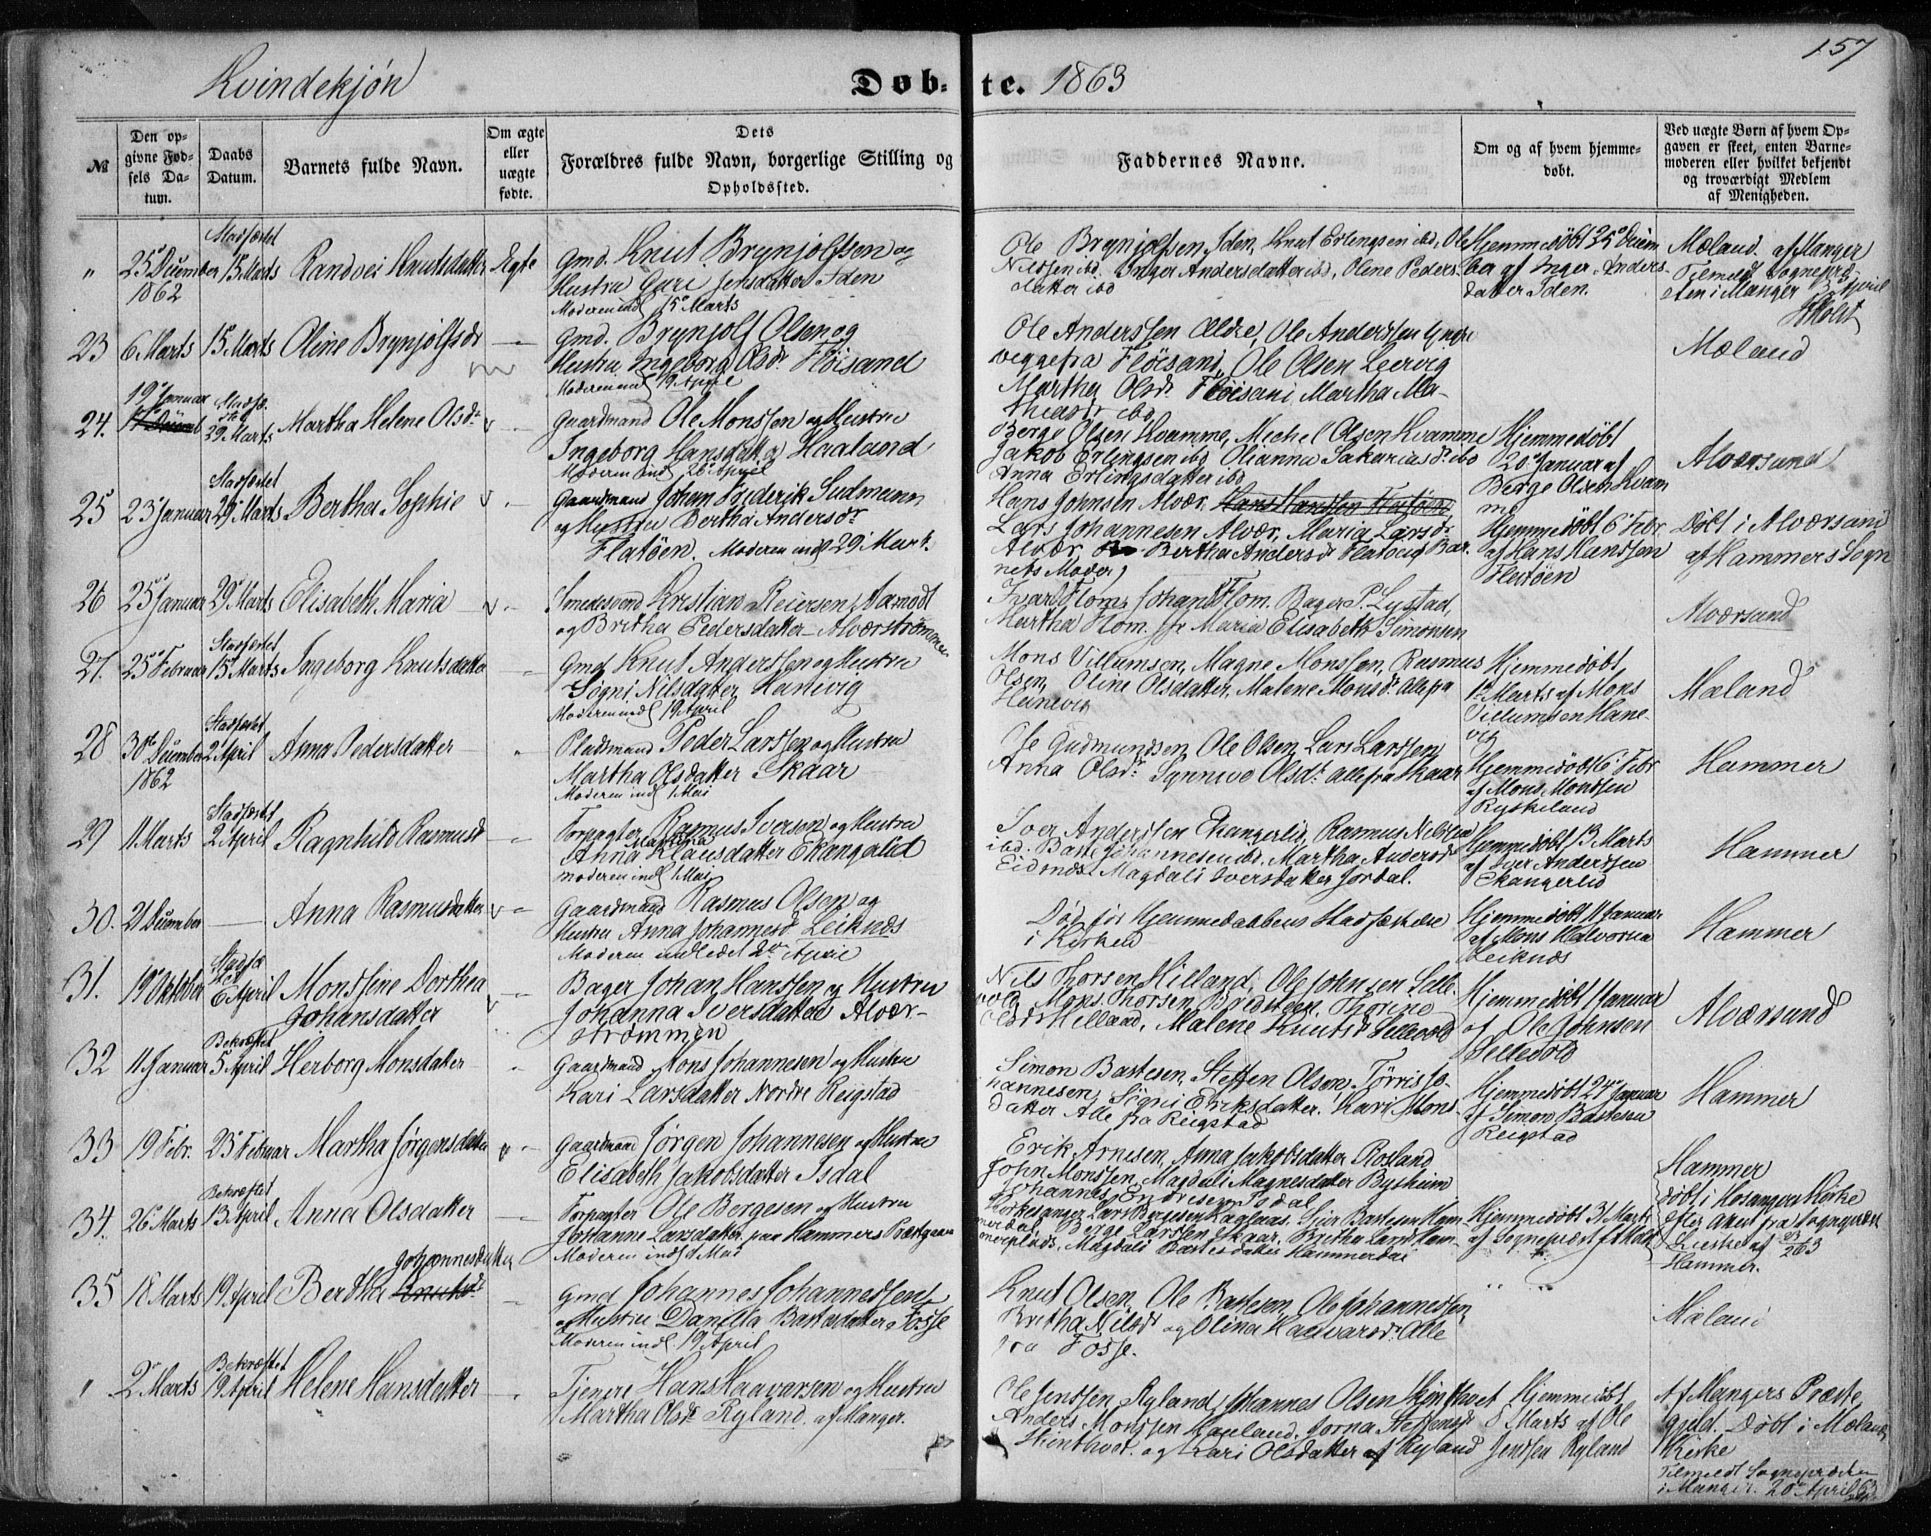 157
Kvindekjøn
Døb-te. 1863
№
Den opgivne Fødsels Datum.
Daabs Datum.
Barnets fulde Navn.
Om ægte eller uægte fødte.
Dets Forældres fulde Navn, borgerlige Stilling og Opholdssted.
Faddernes Navne.
Om og af hvem hjemmedøbt.
Ved uægte Børn af hvem Opgaven er skeet, enten Barnemoderen eller hvilket bekjendt og troværdigt Medlem af Menigheden.
" 25 December 1862
Stadfæstet 15 Marts
Randvei Knutsdatter
Ægte
Gmd. Knut Brynjolfsen og
Hustru Guri Jensdatter Iden
Moderen indl 15 Marts
Ole Brynjolfsen Iden, Knut Erlingsen ibd, Ole
Nilssen ibd. Inger Andersdatter ibd, Oline Peders-
datter ibd
Hjemmedøbt 25 Decem
ber af Inger Anders
datter Iden.
Mæland. af Manger
Tilmeldt Sognepræ-
sten i Manger April
23 6 Marts 15 Marts Oline Brynjolfsdr
Gmd. Brynjolf Olsen og
Hustru Ingeborg Olsdr Fløisand
Moderen indl 19 April
Ole Anderssen Ældre, Ole Anderssen Yngre
begge fra Fløisand, Ole Olsen Leervig
Martha Olsdr Fløisand Martha Ma-
thiasdr ibd
Mæland
24. 19 Januar
Stadfæ-
stet
29 Marts Martha Helene Olsdr
Gaardmand Ole Monssen og Hustru
Ingeborg Hansdatter Haaland
Moderen indl 26 April
Berge Olsen Kvamme, Mechel Olsen Kvamme
Jakob Erlingsen ibd Olianna Sakariasdr ibd
Anna Erlingsdatter ibd
Hjemmedøbt
20 Januar af
Berge Olsen Kvam
me
Alværsund
25 23 Januar Stadfæstet 29 Marts Bertha Sophie
Gaardmand Johan Friderik Sudmann
og Hustru Bertha Andersdr
Flatøen. Moderen indl 29 Mart.
Hans Johnsen Alvær.
Lars Johannesen Alvær, Maria Larsdr
Alvær, Bertha Andersdr Flatøen Bar-
nets Moder,
Hjemmedøbt 6 Febr
af Hans Hanssen
Flatøen
Døbt i Alværsund
af Hammers Sogn
26 25 Januar 29 Marts Elisabeth Maria
Smedesvend Kristian Reiersen Aamodt
og Britha Pedersdatter Alværstrømmen
Ivar Flom, Johan Flom. Bager P. Lystad,
Martha Flom. Maria Elisabeth Simonsen
Alværsund
27. 25 Februar Stadfæstet 15 Marts Ingeborg Knutsdatter
Gmd Knut Anderssen og Hustru
Sygni Nilsdatter Hanevig
Moderen indl 19 April
Mons Villumsen, Magne Monssen, Rasmus
Olsen, Oline Olsdatter, Malene Monsdr alle fra
Hanevig
Hjemmedøbt
1 Marts af Mons
Villumsen Hane-
vig
Mæland
28 30 December 1862 Stadfæstet 2 April Anna Pedersdatter
Pladsmand Peder Larssen og Hustru
Martha Olsdatter Skaar
Moderen indl 1 Mai
Ole Gudmundsen, Ole Olsen, Lars Larssen
Anna Olsdr Synneve Olsdr alle fra Skaar
Hjemmedøbt 6 Febr
af Mons Monssen
Ryskeland
Hammer
29 11 Marts Stadfæstet 2 April Ragnhild Rasmusdr
Forpagter Rasmus Iversen og Hustru
Anna Martina Klausdatter Ekangerlid
Moderen indl 1 Mai
Iver Anderssen Ekangerlid, Rasmus Nilssen
ibd. Baste Johannesen ibd. Martha Andersdr
Eidsnes. Magdali Iversdatter Jordal.
Hjemmedøbt 13 Marts
af Iver Anderssen
Ekangerlid
Hammer
30. 21 December Anna Rasmusdatter
Gaardmand Rasmus Olsen og
Hustru Anna Johannesdr Leiknes
Moderen indledet 2 April
Død før Hjemmedaabens Stadfæstelse
i Kirken
Hjemmedøbt 11 Januar
af Mons Halvorsen
Leiknes
Hammer
31. 19 Oktober Stadfæ-
stet
6 April Monsine Dorthea
Johansdatter
Bager Johan Hanssen og Hustru
Johanna Iversdatter Alvær-
strømmen
Nils Thorsen Hilland, Ole Johnsen Selle-
vold, Mons Thorsen Brudsteen, Thorine
Olsdr Hilland, Malene Knutsdr Sellevold
Hjemmedøbt 1 Januar
af Ole Johnsen
Sellevold
Alværsund
32 11 Januar Bekræftet 5 April Herborg Monsdatter
Gaardmand Mons Johannesen og Hustru
Kari Larsdatter Nordre Reigstad
Simon Bastesen, Steffen Olsen, Tørris Jo-
hannesen, Signi Eriksdatter. Kari Mons-
datter Alle fra Reigstad
Hjemmedøbt 24 Januar
af Simon Bastesen
Reigstad
Hammer
33 19 Febr. 23 Februar Martha Jørgensdatter
Gaardmand Jørgen Johannesen og Hustru
Elisabeth Jakobsdatter Isdal
Erik Arnesen, Anna Jakobsdatter Rosland
John Monssen, Magdali Magnesdatter Bysheim
Johannes Endresen Isdal
Hammer
døbt i Hosanger Kirke
efter Attest fra Sognepræst
Lieske af 23/2 63
34. 26 Marts Bekræftet 13 April Anna Olsdatter
Forpagter Ole Bergesen og Hustru
Johanne Larsdatter paa Hammers Præstgaard
Moderen indl 1 Mai
Lars Bergesen Kaglaas. Sjur Bastesen Ham
merdal, Berge Larssen Skaar, Britha Larsdr Ham-
merplads, Magdali Bastesdatter Hammerdal
Hjemmedøbt 31 Marts
af Sognepræst
Hammer.
35 18 Marts 19 April Bertha Johannesdatter
Gmd Johannes Johannessen
og Hustru Danilla Bastesdatter Fosse
Moderen indl. 19 April
Knut Olsen, Ole Bastesen, Ole Johannessen
Britha Nilsdr og Olina Haavarsdr. Alle
fra Fosse.
" "
Mæland
" 2 Marts Bekræftet 19 April Helene Hansdatter
Tjener Hans Haavarsen og Hustru
Martha Olsdr Ryland. af Manger.
Ole Jenssen Ryland, Johannes Olsen Skinthvet
Anders Monssen Hauland, Jorna Steffensdr
Skinthvet. og Kari Olsdatter af Ryland
Hjemmedøbt
8 Marts af Ole
Jenssen Ryland
Af Mangers Præste
gjeld. Døbt i Mælands
Kirke
Tilmeldt Sognepræsten
i Manger. 20 April 63